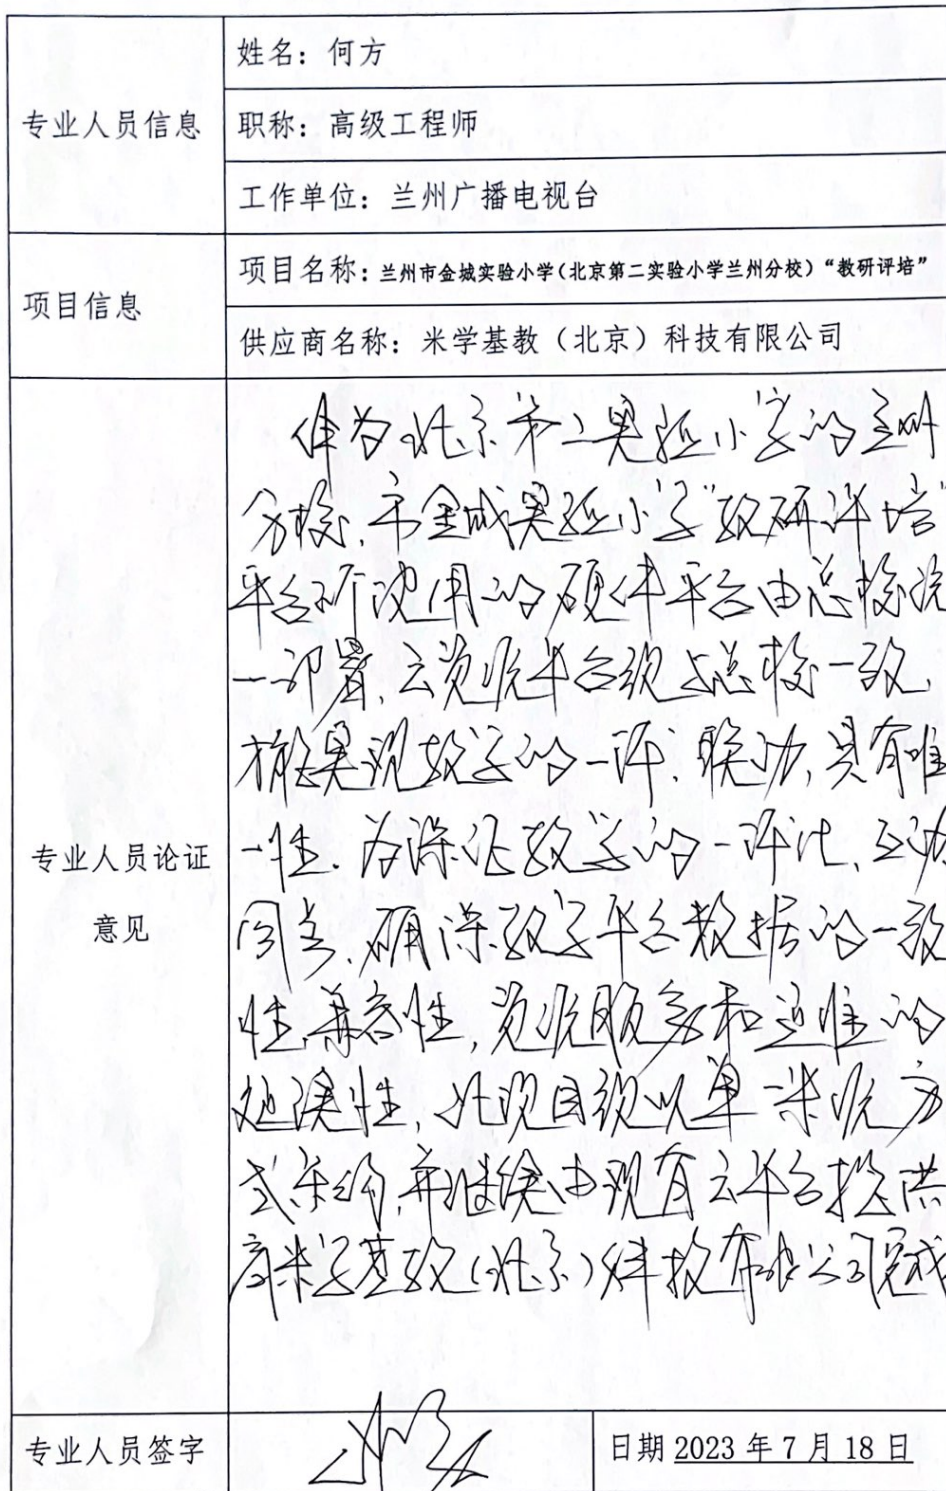 专业人员信息
姓名：何方
职称：高级工程师
工作单位：兰州广播电视台
项目信息
项目名称：兰州市金城实验小学（北京第二实验小学兰州分校）“教研评培”
供应商名称：米学基教（北京）科技有限公司
专业人员论证
意见
作为北京第二实验小学的兰州
分校，市金城实验小学“教研评培”
平台所使用的硬件平台由总校统
一部署，云资源平台须与总校一致，
才能实现教学的一体、联动，具有唯
一性，为保证教学的一体化、互动
同步，确保教学平台数据的一致
性、兼容性，资源服务和运维的
延续性，此项目须以单一来源方
式采购，并继续由现有云平台提供
商米学基教（北京）科技有限公司完成
专业人员签字
日期 2023 年 7 月 18 日